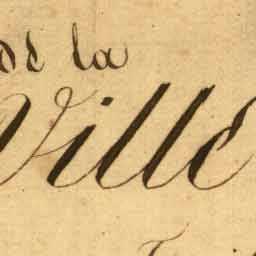 de la
Ville